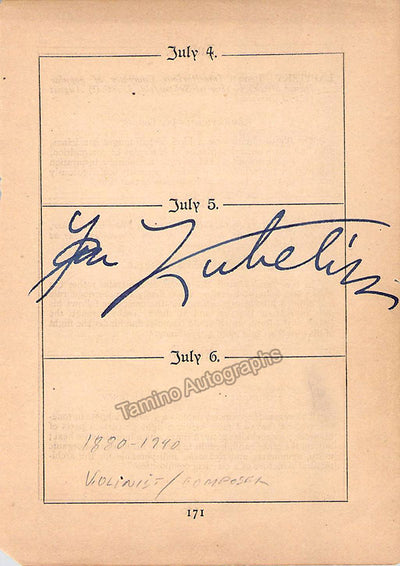 July 4.
July 5.
Jan Kubelik
July 6.
Tamino Autographs
1880-1940
VIOLINIST/COMPOSER
171